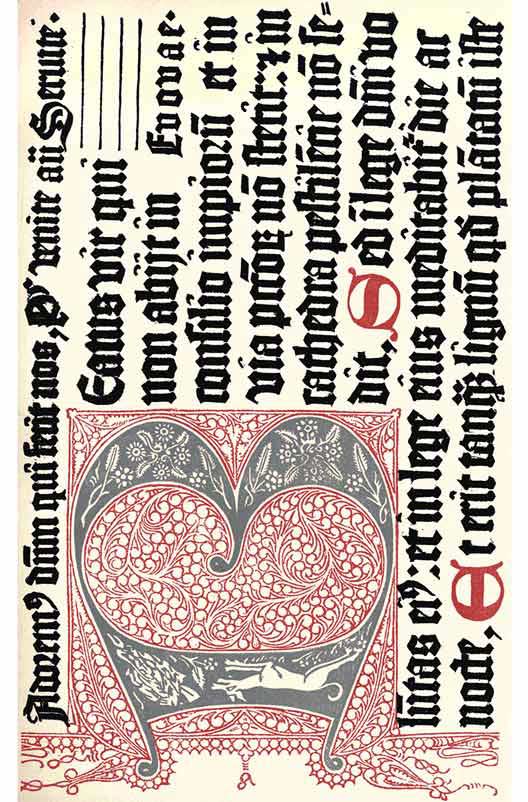 Adorem⁹ dn̄m qui fecit nos, P̄s venite an̄ Seruite.
Beatus vir qui
non abijt in Evovae.
consilio impiorū et in
via pctōꝝ nō stetit: ⁊ in
cathedra pestilēcie nō se=
dit, Sed ī lege dn̄i vo
lūtas ei⁹: et in lege eius meditabit᷑ die ac
nocte, Et erit tanqꝫ lignū qd̄ plātatū iste